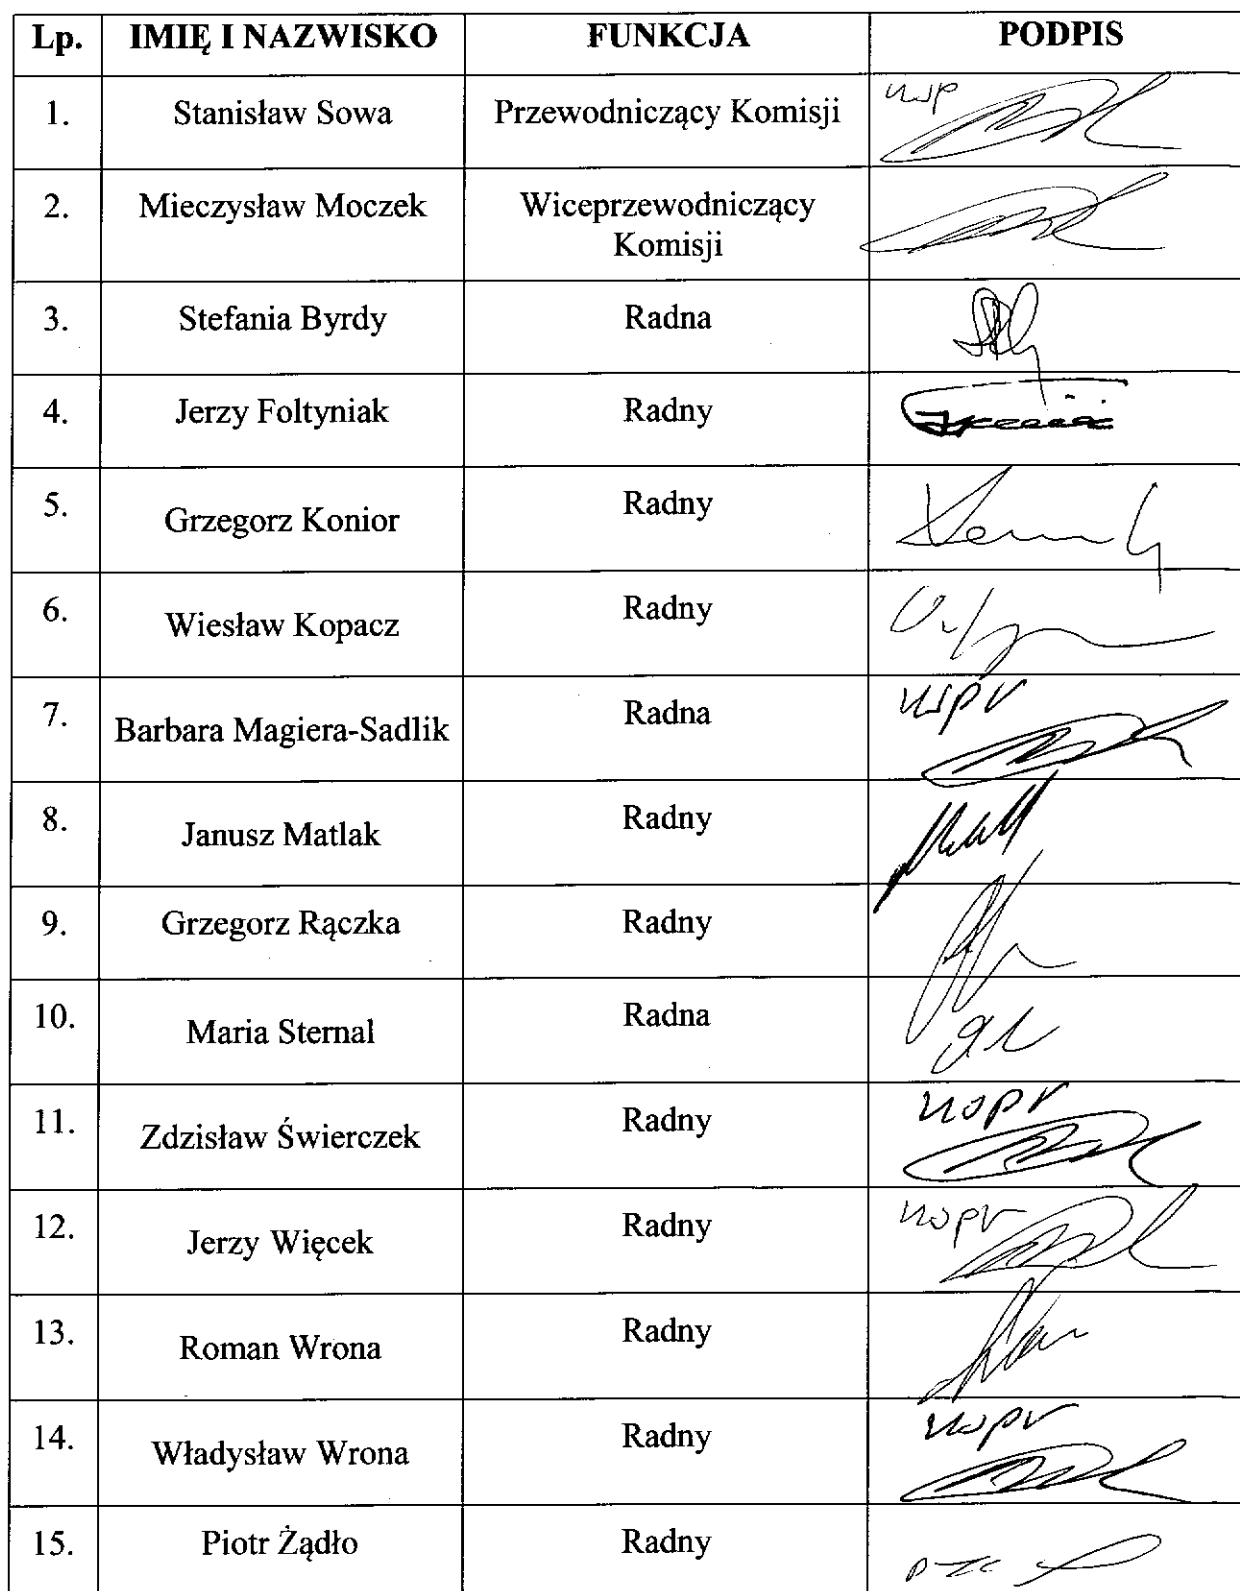 Lp. IMIĘ I NAZWISKO FUNKCJA PODPIS
1. Stanisław Sowa Przewodniczący Komisji
2. Mieczysław Moczek Wiceprzewodniczący
Komisji
3. Stefania Byrdy Radna
4. Jerzy Foltyniak Radny
5. Grzegorz Konior Radny
6. Wiesław Kopacz Radny
7. Barbara Magiera-Sadlik Radna
8. Janusz Matlak Radny
9. Grzegorz Rączka Radny
10. Maria Sternal Radna
11. Zdzisław Świerczek Radny
12. Jerzy Więcek Radny
13. Roman Wrona Radny
14. Władysław Wrona Radny
15. Piotr Żądło Radny